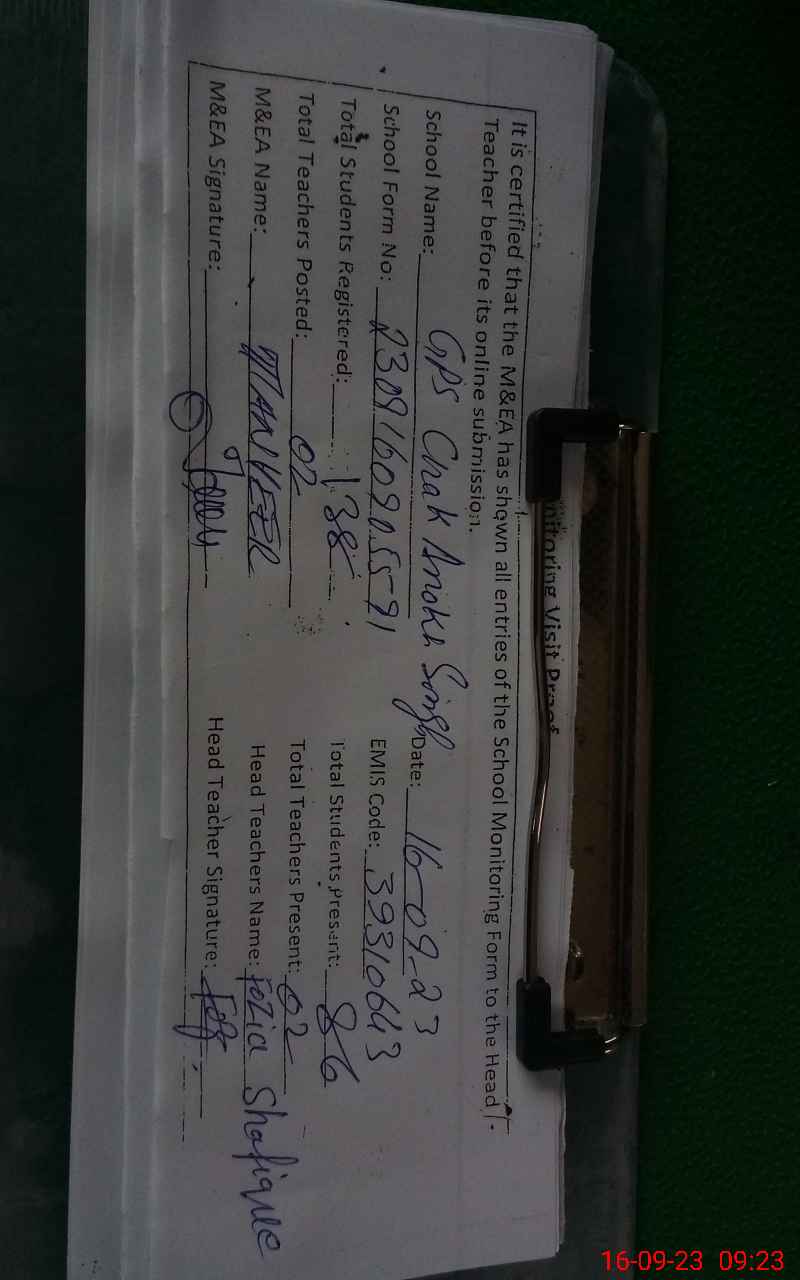 Monitoring Visit Proof
It is certified that the M&EA has shown all entries of the School Monitoring Form to the Head
Teacher before its online submission.
School Name: GPS Chak Anokh Singh Date: 16-09-23
School Form No: 2309160905591 EMIS Code: 39310643
Total Students Registered: 138 Total Students Present: 86
Total Teachers Posted: 02 Total Teachers Present: 02
M&EA Name: TANVEER Head Teachers Name: Fozia Shafique
M&EA Signature: Head Teacher Signature:
16-09-23 09:23